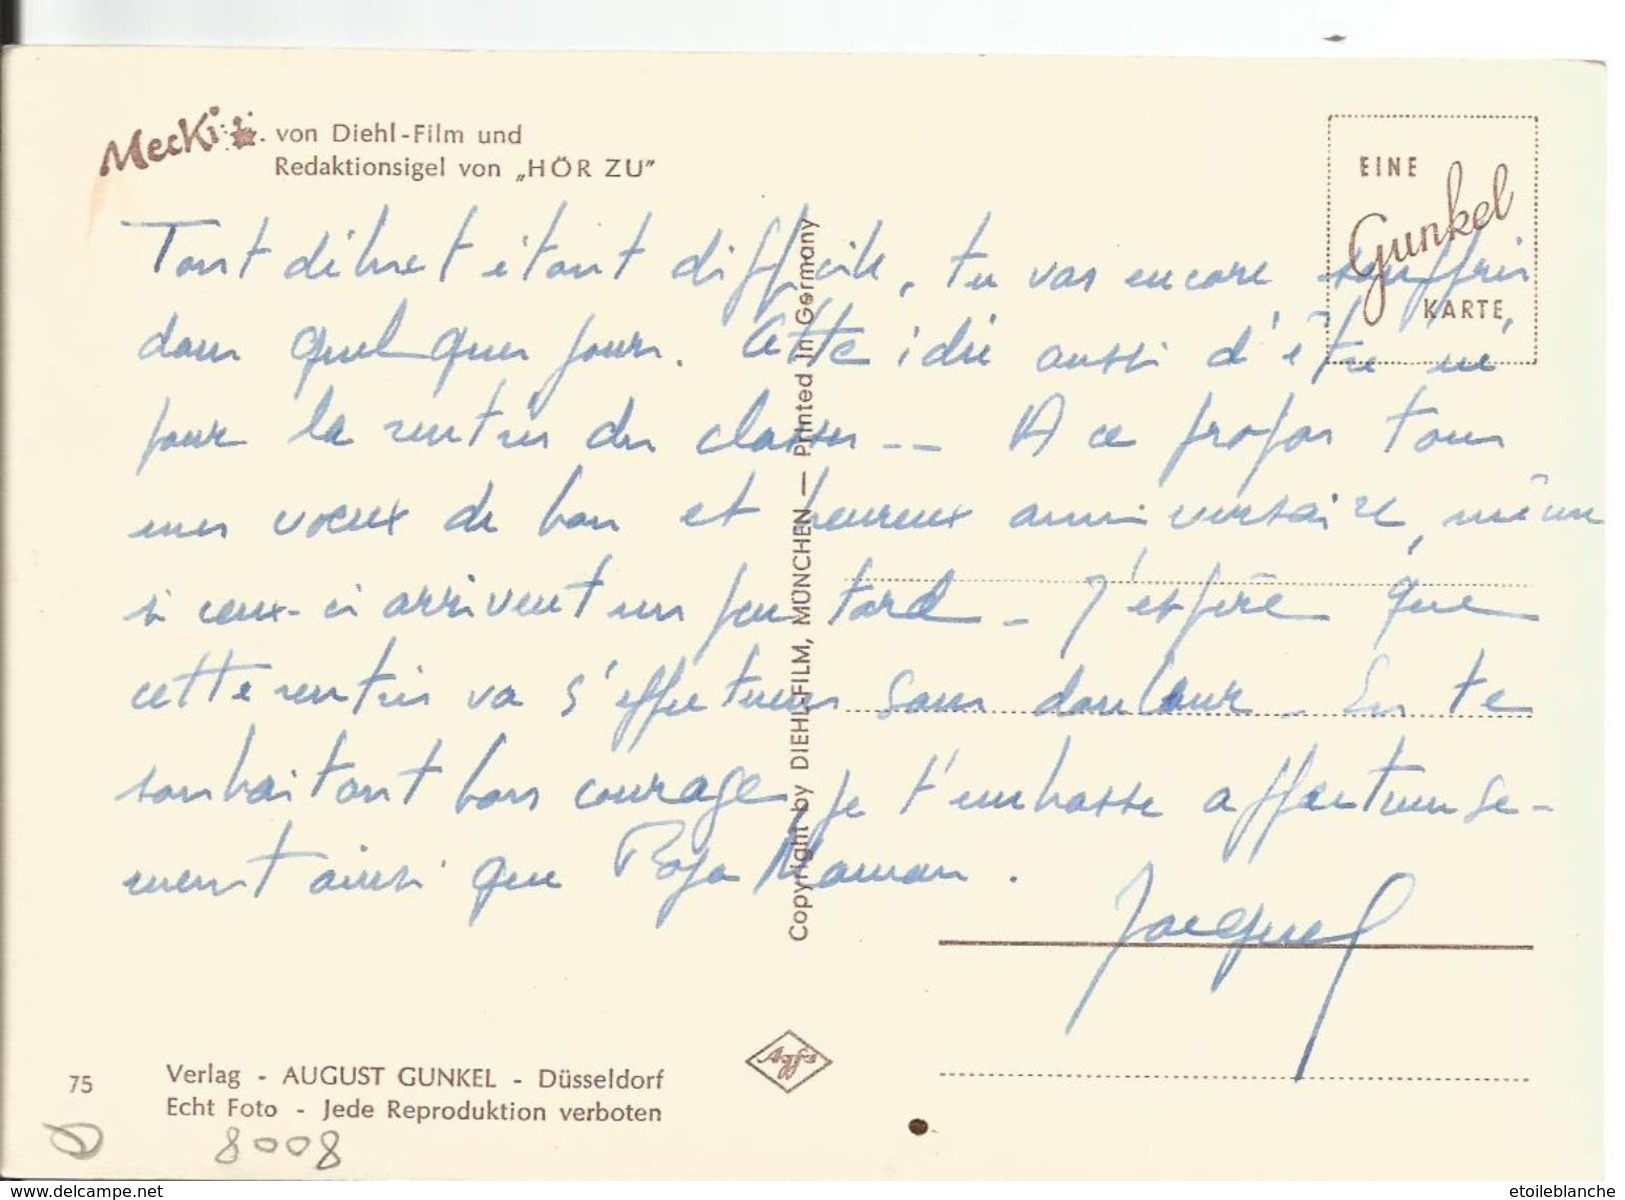 Mecki von Diehl-Film und
Redaktionsigel von „HÖR ZU"
EINE
Gunkel
KARTE
Tout début étant difficile, tu vas encore souffrir
dans quelques jours. Cette idée aussi d'être né
pour la rentrée des classes -- A ce propos tous
mes vœux de bon et heureux anniversaire, même
si ceux-ci arrivent un peu tard - J'espère que
cette rentrée va s'effectuer sans douleur - En te
souhaitant bon courage je t'embrasse affectueuse-
ment ainsi que Papa Maman.
Jacques
Copyright by DIEHL-FILM, MÜNCHEN — Printed in Germany
Agfa
75
Verlag - AUGUST GUNKEL - Düsseldorf
Echt Foto - Jede Reproduktion verboten
8008
www.delcampe.net
etoileblanche